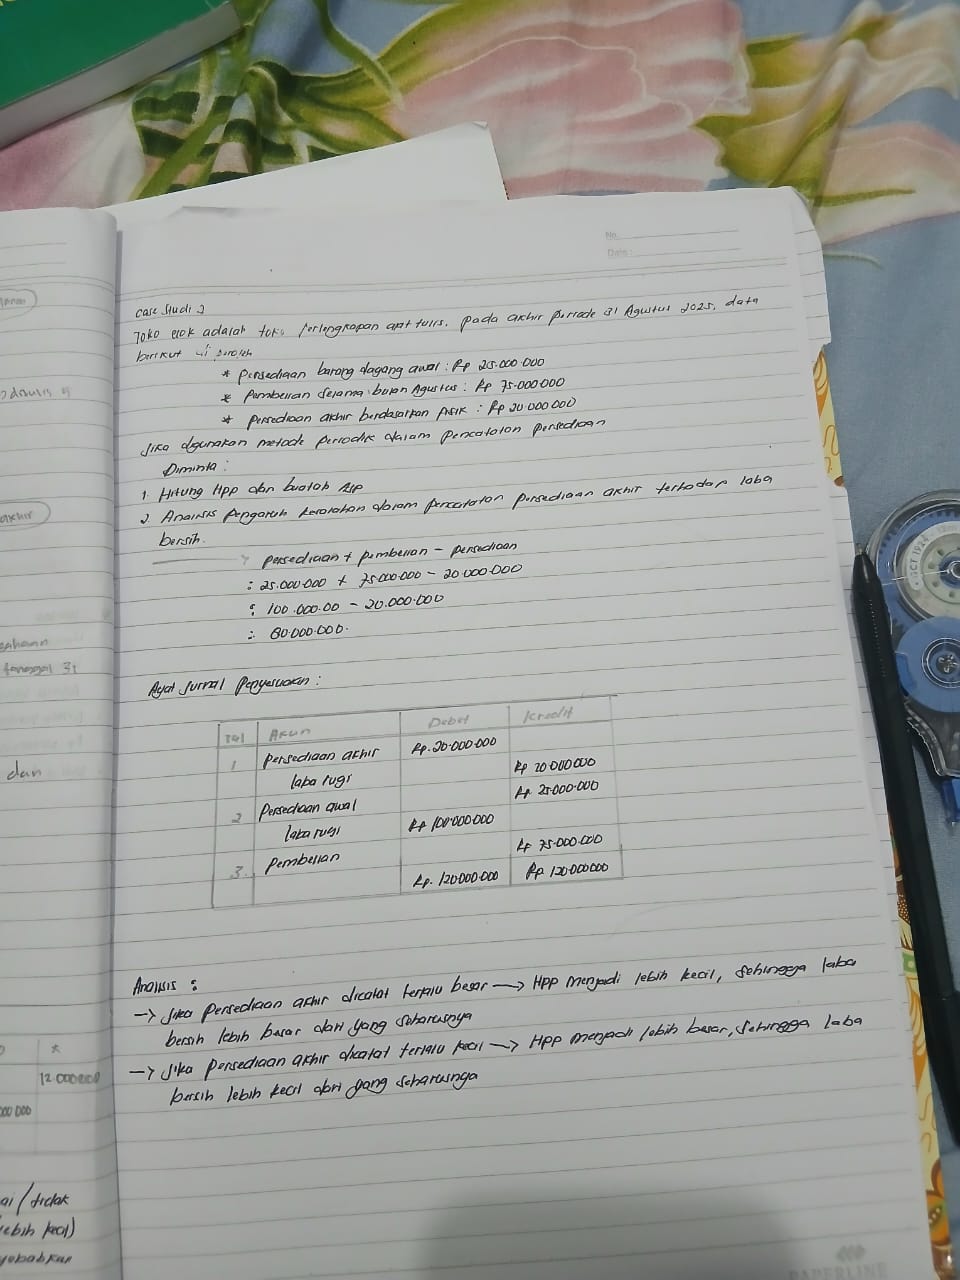 No.
Date:
case studi 2
Toko elok adalah toko perlengkapan alat tulis. pada akhir periode 31 Agustus 2025, data
berikut di peroleh
* Persediaan barang dagang awal : Rp 25.000.000
* Pembelian selama bulan Agustus : Rp 75.000.000
* Persediaan akhir berdasarkan fisik : Rp 20.000.000
Jika digunakan metode periodik dalam pencatatan persediaan
Diminta :
1. Hitung Hpp dan buatlah AJP
2. Analisis pengaruh kesalahan dalam pencatatan persediaan akhir terhadap laba
bersih.
persediaan + pembelian - persediaan
: 25.000.000 + 75.000.000 - 20.000.000
: 100.000.00 - 20.000.000
: 80.000.000.
Ayat Jurnal Penyesuaian :
Tgl Akun Debet Kredit
1 Persediaan akhir Rp. 20.000.000
laba rugi Rp 20.000.000
2 Persediaan awal Rp. 25.000.000
laba rugi Rp 100.000.000
3. Pembelian Rp 75.000.000
Rp. 120.000.000 Rp. 120.000.000
Analisis :
-> Jika Persediaan akhir dicatat terlalu besar -> Hpp menjadi lebih kecil, sehingga laba
bersih lebih besar dari yang seharusnya
-> Jika Persediaan akhir dicatat terlalu kecil -> Hpp menjadi lebih besar, sehingga laba
bersih lebih kecil dari yang seharusnya
akhir
tanggal 31
dan
K
12.000.000
000 000
ai / tidak
lebih kecil)
yebabkan
PAPERLINE